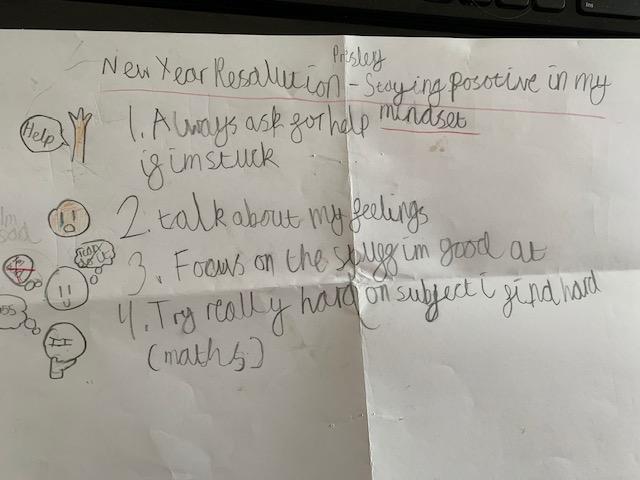 Presley
New Year Resalution - Staying posotive in my
mindset
Help
1. Always ask for help
if im stuck
Im
sad
2. talk about my feelings
3. Focus on the stuff im good at
4. Try really hard on subject i find hard
(maths)